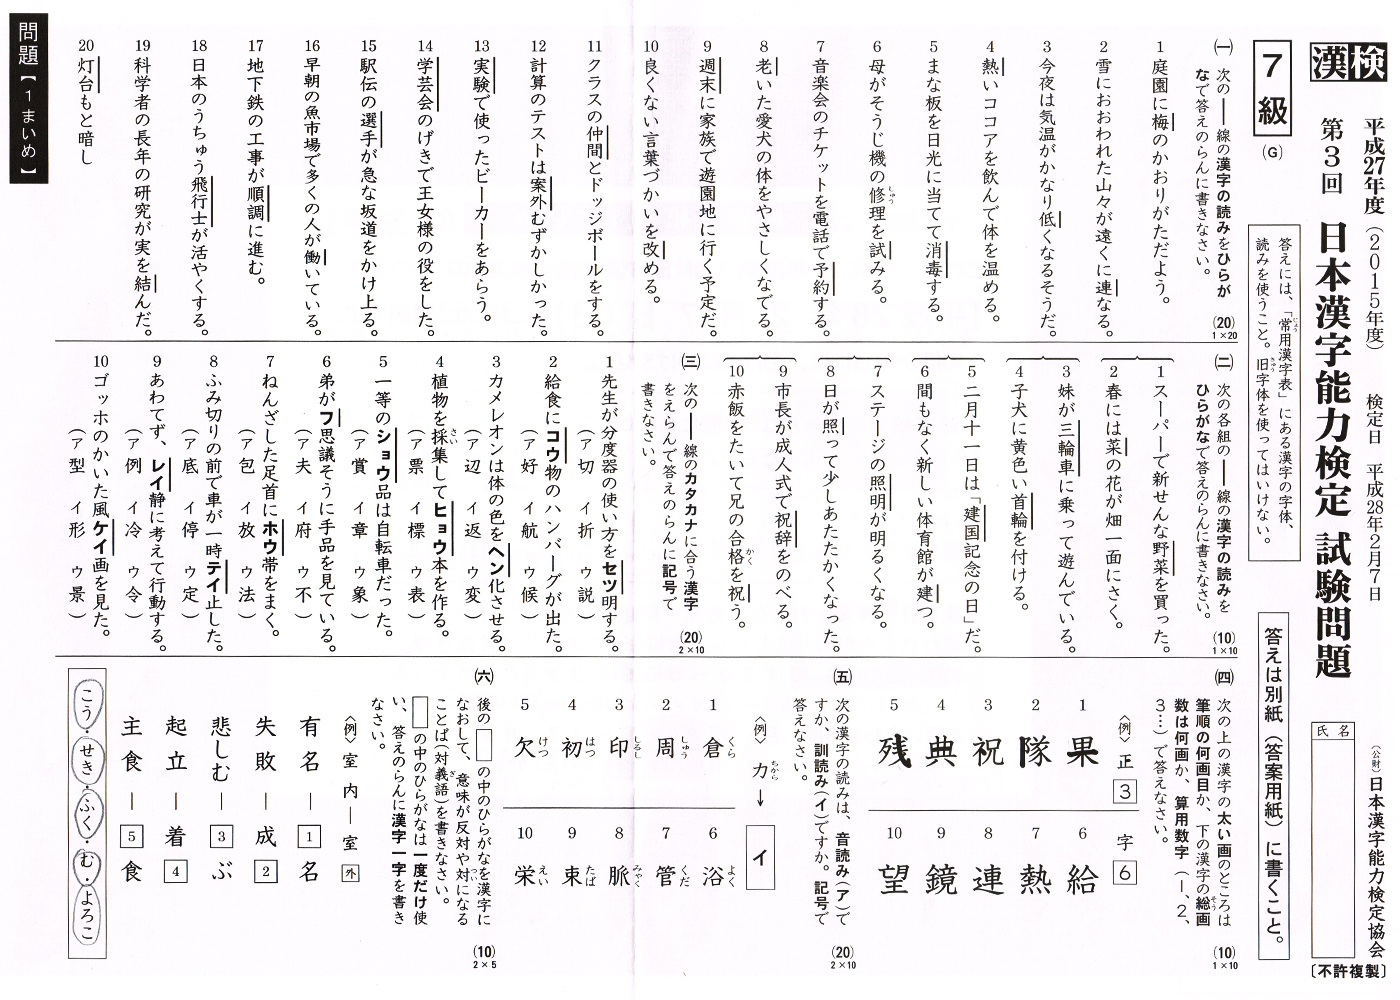 漢検
平成27年度(2015年度) 検定日 平成28年2月7日
第3回 日本漢字能力検定 試験問題
(公財)日本漢字能力検定協会
〔不許複製〕
氏名
7級
(G)
答えには、「常用漢字表」にある漢字の字体、
読みを使うこと。旧字体を使ってはいけない。
答えは別紙(答案用紙)に書くこと。
(一) 次の――線の漢字の読みをひらが
なで答えのらんに書きなさい。
(20)
1×20
1 庭園に梅のかおりがただよう。
2 雪におおわれた山々が遠くに連なる。
3 今夜は気温がかなり低くなるそうだ。
4 熱いココアを飲んで体を温める。
5 まな板を日光に当てて消毒する。
6 母がそうじ機の修理を試みる。
7 音楽会のチケットを電話で予約する。
8 老いた愛犬の体をやさしくなでる。
9 週末に家族で遊園地に行く予定だ。
10 良くない言葉づかいを改める。
11 クラスの仲間とドッジボールをする。
12 計算のテストは案外むずかしかった。
13 実験で使ったビーカーをあらう。
14 学芸会のげきで王女様の役をした。
15 駅伝の選手が急な坂道をかけ上る。
16 早朝の魚市場で多くの人が働いている。
17 地下鉄の工事が順調に進む。
18 日本のうちゅう飛行士が活やくする。
19 科学者の長年の研究が実を結んだ。
20 灯台もと暗し
(二) 次の各組の――線の漢字の読みを
ひらがなで答えのらんに書きなさい。
(10)
1×10
1 スーパーで新せんな野菜を買った。
2 春には菜の花が畑一面にさく。
3 妹が三輪車に乗って遊んでいる。
4 子犬に黄色い首輪を付ける。
5 二月十一日は「建国記念の日」だ。
6 間もなく新しい体育館が建つ。
7 ステージの照明が明るくなる。
8 日が照って少しあたたかくなった。
9 市長が成人式で祝辞をのべる。
10 赤飯をたいて兄の合格を祝う。
(三) 次の――線のカタカナに合う漢字
をえらんで答えのらんに記号で
書きなさい。
(20)
2×10
1 先生が分度器の使い方をセツ明する。
(ア切 イ折 ウ説)
2 給食にコウ物のハンバーグが出た。
(ア好 イ航 ウ候)
3 カメレオンは体の色をヘン化させる。
(ア辺 イ返 ウ変)
4 植物を採集してヒョウ本を作る。
(ア票 イ標 ウ表)
5 一等のショウ品は自転車だった。
(ア賞 イ章 ウ象)
6 弟がフ思議そうに手品を見ている。
(ア夫 イ府 ウ不)
7 ねんざした足首にホウ帯をまく。
(ア包 イ放 ウ法)
8 ふみ切りの前で車が一時テイ止した。
(ア底 イ停 ウ定)
9 あわてず、レイ静に考えて行動する。
(ア例 イ冷 ウ令)
10 ゴッホのかいた風ケイ画を見た。
(ア型 イ形 ウ景)
(四) 次の上の漢字の太い画のところは
筆順の何画目か、下の漢字の総画
数は何画か、算用数字(1、2、
3…)で答えなさい。
(10)
1×10
〈例〉 正 3 字 6
1 果
2 隊
3 祝
4 典
5 残
6 給
7 熱
8 連
9 鏡
10 望
(五) 次の漢字の読みは、音読み(ア)で
すか、訓読み(イ)ですか。記号で
答えなさい。
(20)
2×10
〈例〉 力ちから → イ
1 倉くら
2 周しゅう
3 印しるし
4 初はつ
5 欠けつ
6 浴よく
7 管くだ
8 脈みゃく
9 束たば
10 栄えい
(六) 後の□の中のひらがなを漢字に
なおして、意味が反対や対になる
ことば(対義語)を書きなさい。
□の中のひらがなは一度だけ使
い、答えのらんに漢字一字を書き
なさい。
(10)
2×5
〈例〉 室内―室外
有名―1名
失敗―成2
悲しむ―3ぶ
起立―着4
主食―5食
こう・せき・ふく・む・よろこ
問題【1まいめ】